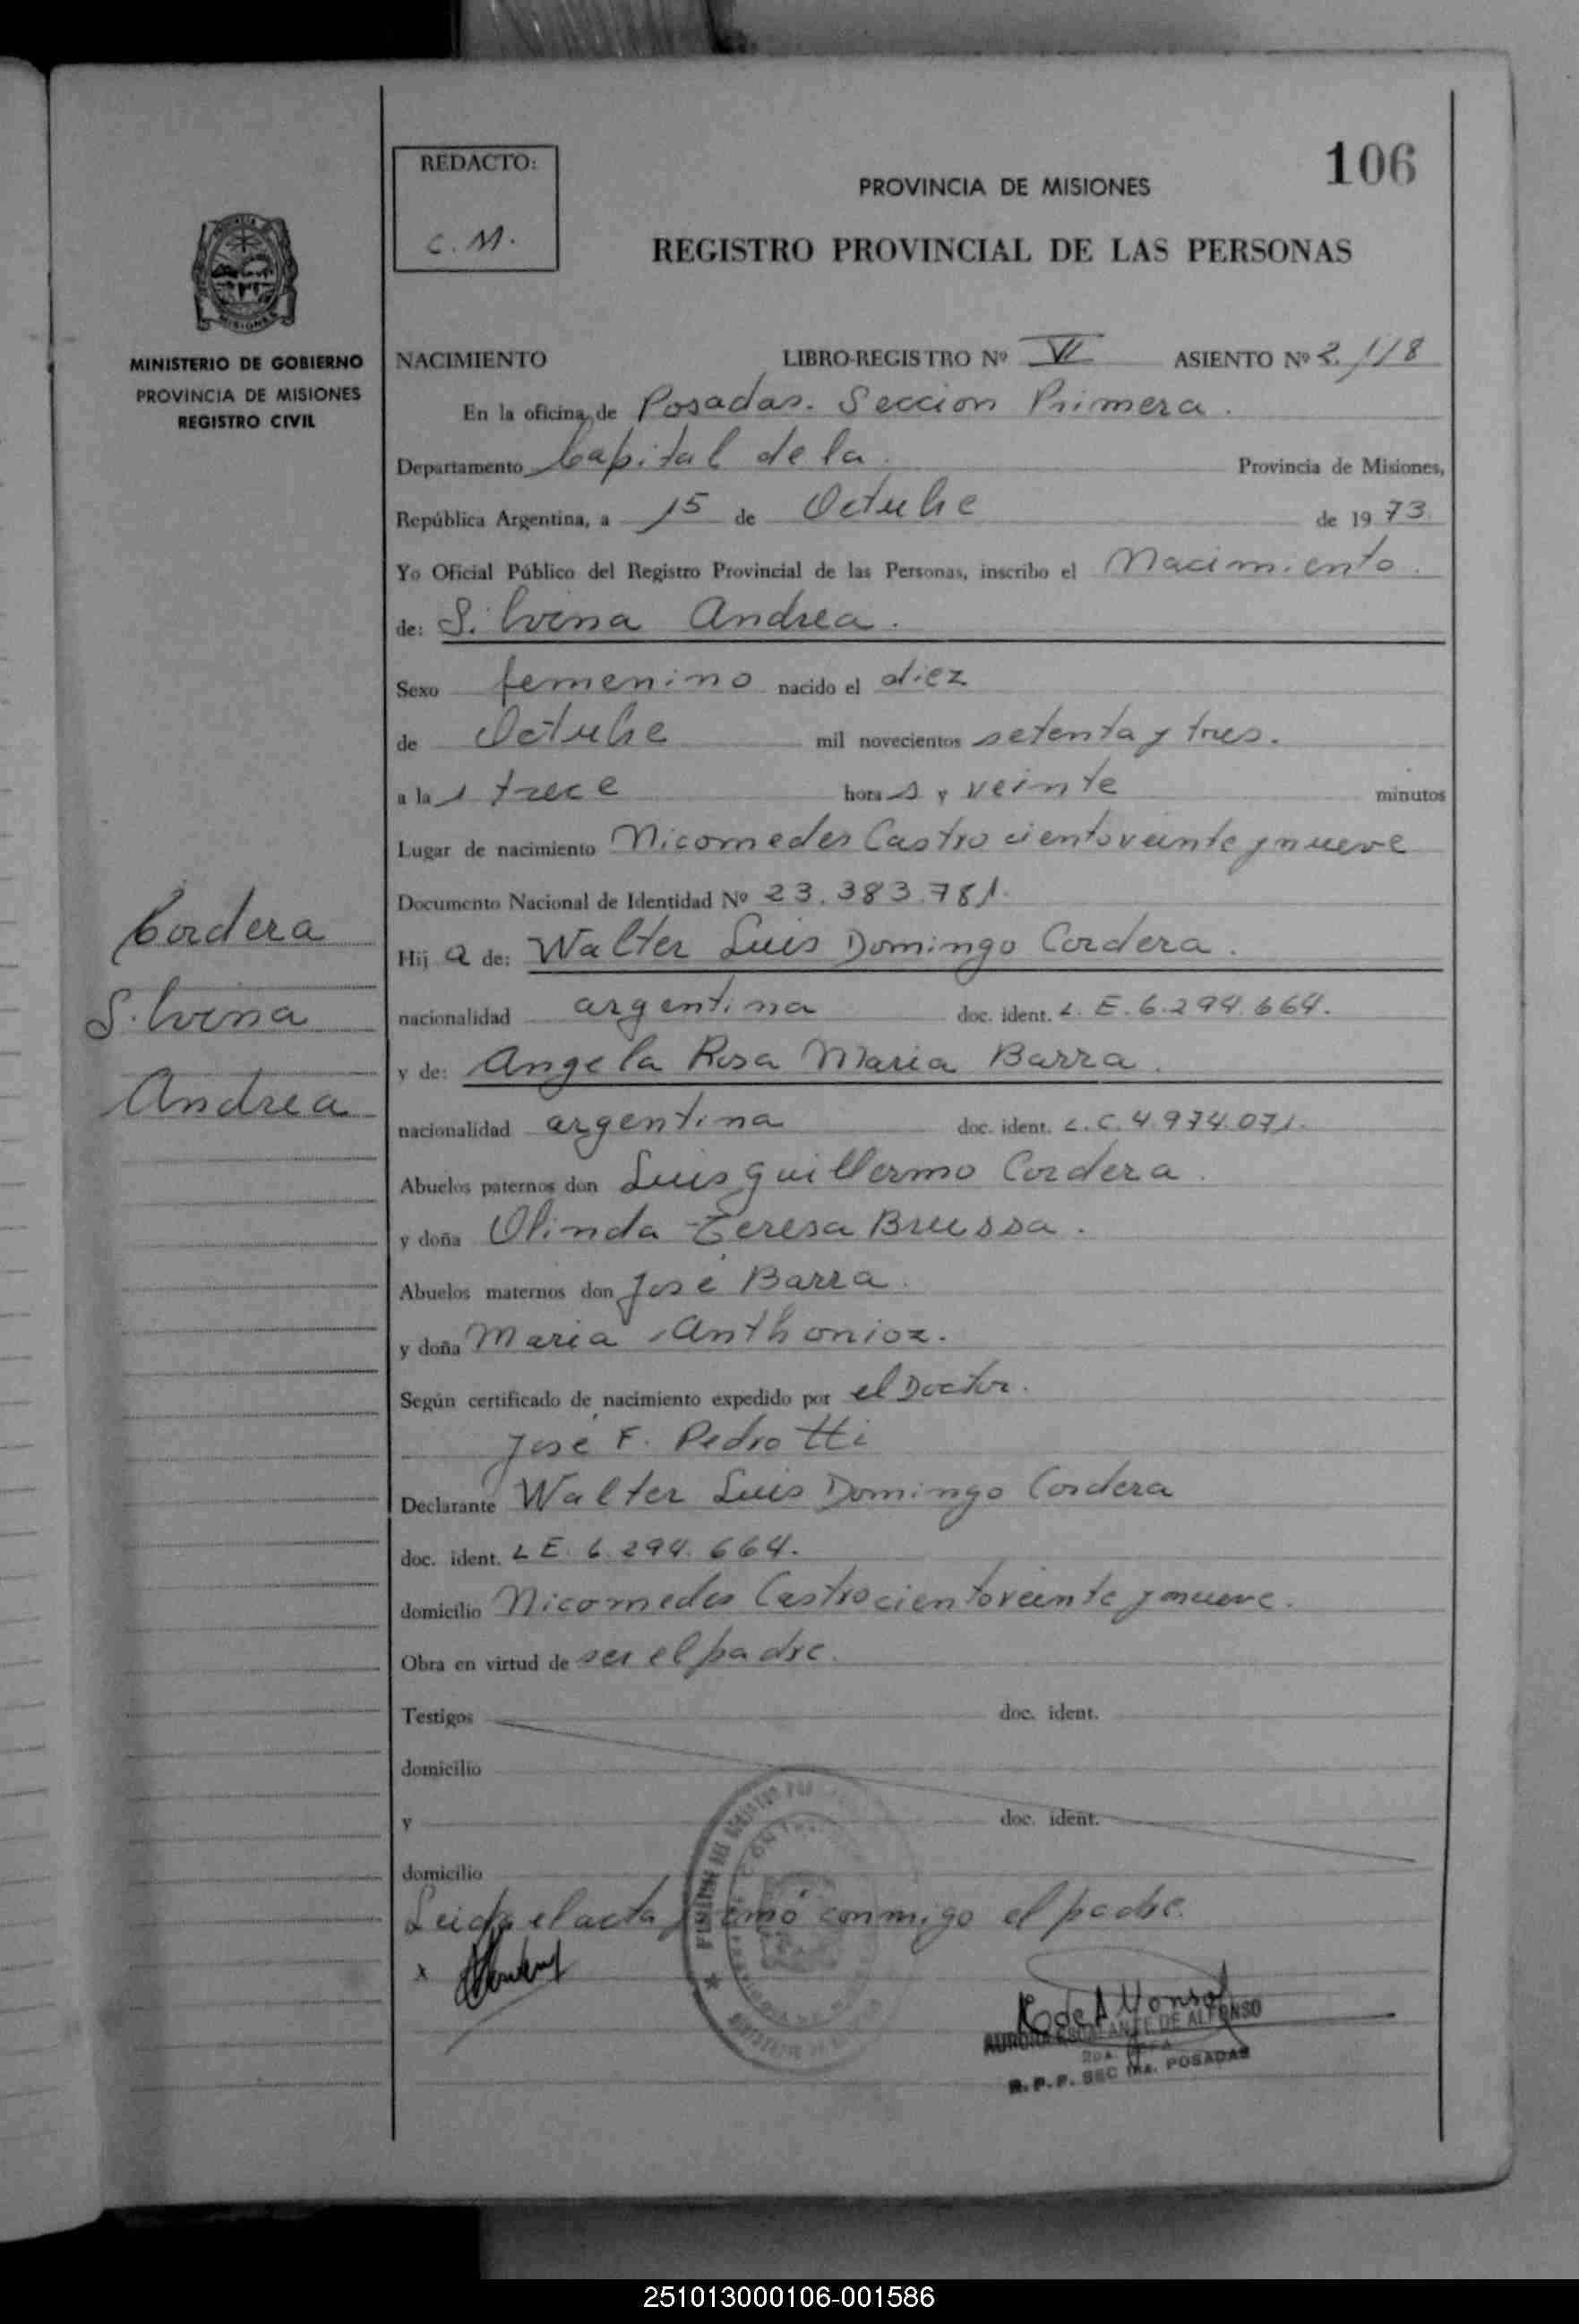 REDACTO:
C. M.
106
PROVINCIA DE MISIONES
REGISTRO PROVINCIAL DE LAS PERSONAS
MISIONES
MINISTERIO DE GOBIERNO
PROVINCIA DE MISIONES
REGISTRO CIVIL
NACIMIENTO LIBRO-REGISTRO Nº VI ASIENTO Nº 2.118
En la oficina de Posadas. Seccion Primera.
Departamento Capital de la Provincia de Misiones,
República Argentina, a 15 de Octubre de 1973.
Yo Oficial Público del Registro Provincial de las Personas, inscribo el Nacimiento.
de: Silvina Andrea.
Sexo femenino nacido el diez
de Octubre mil novecientos setenta y tres.
a las trece horas y veinte minutos
Lugar de nacimiento Nicomedes Castro ciento veinte y nueve
Documento Nacional de Identidad Nº 23.383.781.
Cordera
Silvina
Andrea
Hija de: Walter Luis Domingo Cordera.
nacionalidad argentina doc. ident. L. E. 6.294.664.
y de: Angela Rosa Maria Barra.
nacionalidad argentina doc. ident. L.C. 4.974.071.
Abuelos paternos don Luis Guillermo Cordera.
y doña Olinda Teresa Brussa.
Abuelos maternos don José Barra.
y doña Maria Anthonioz.
Según certificado de nacimiento expedido por el Doctor.
José F. Pedrotti
Declarante Walter Luis Domingo Cordera
doc. ident. L E. 6.294.664.
domicilio Nicomedes Castro ciento veinte y nueve.
Obra en virtud de ser el padre.
Testigos doc. ident.
domicilio
y doc. ident.
domicilio
Leida el acta firmó conmigo el padre.
x
AURORA ESCALANTE DE ALFONSO
R. P. P. SEC 1RA. POSADAS
251013000106-001586